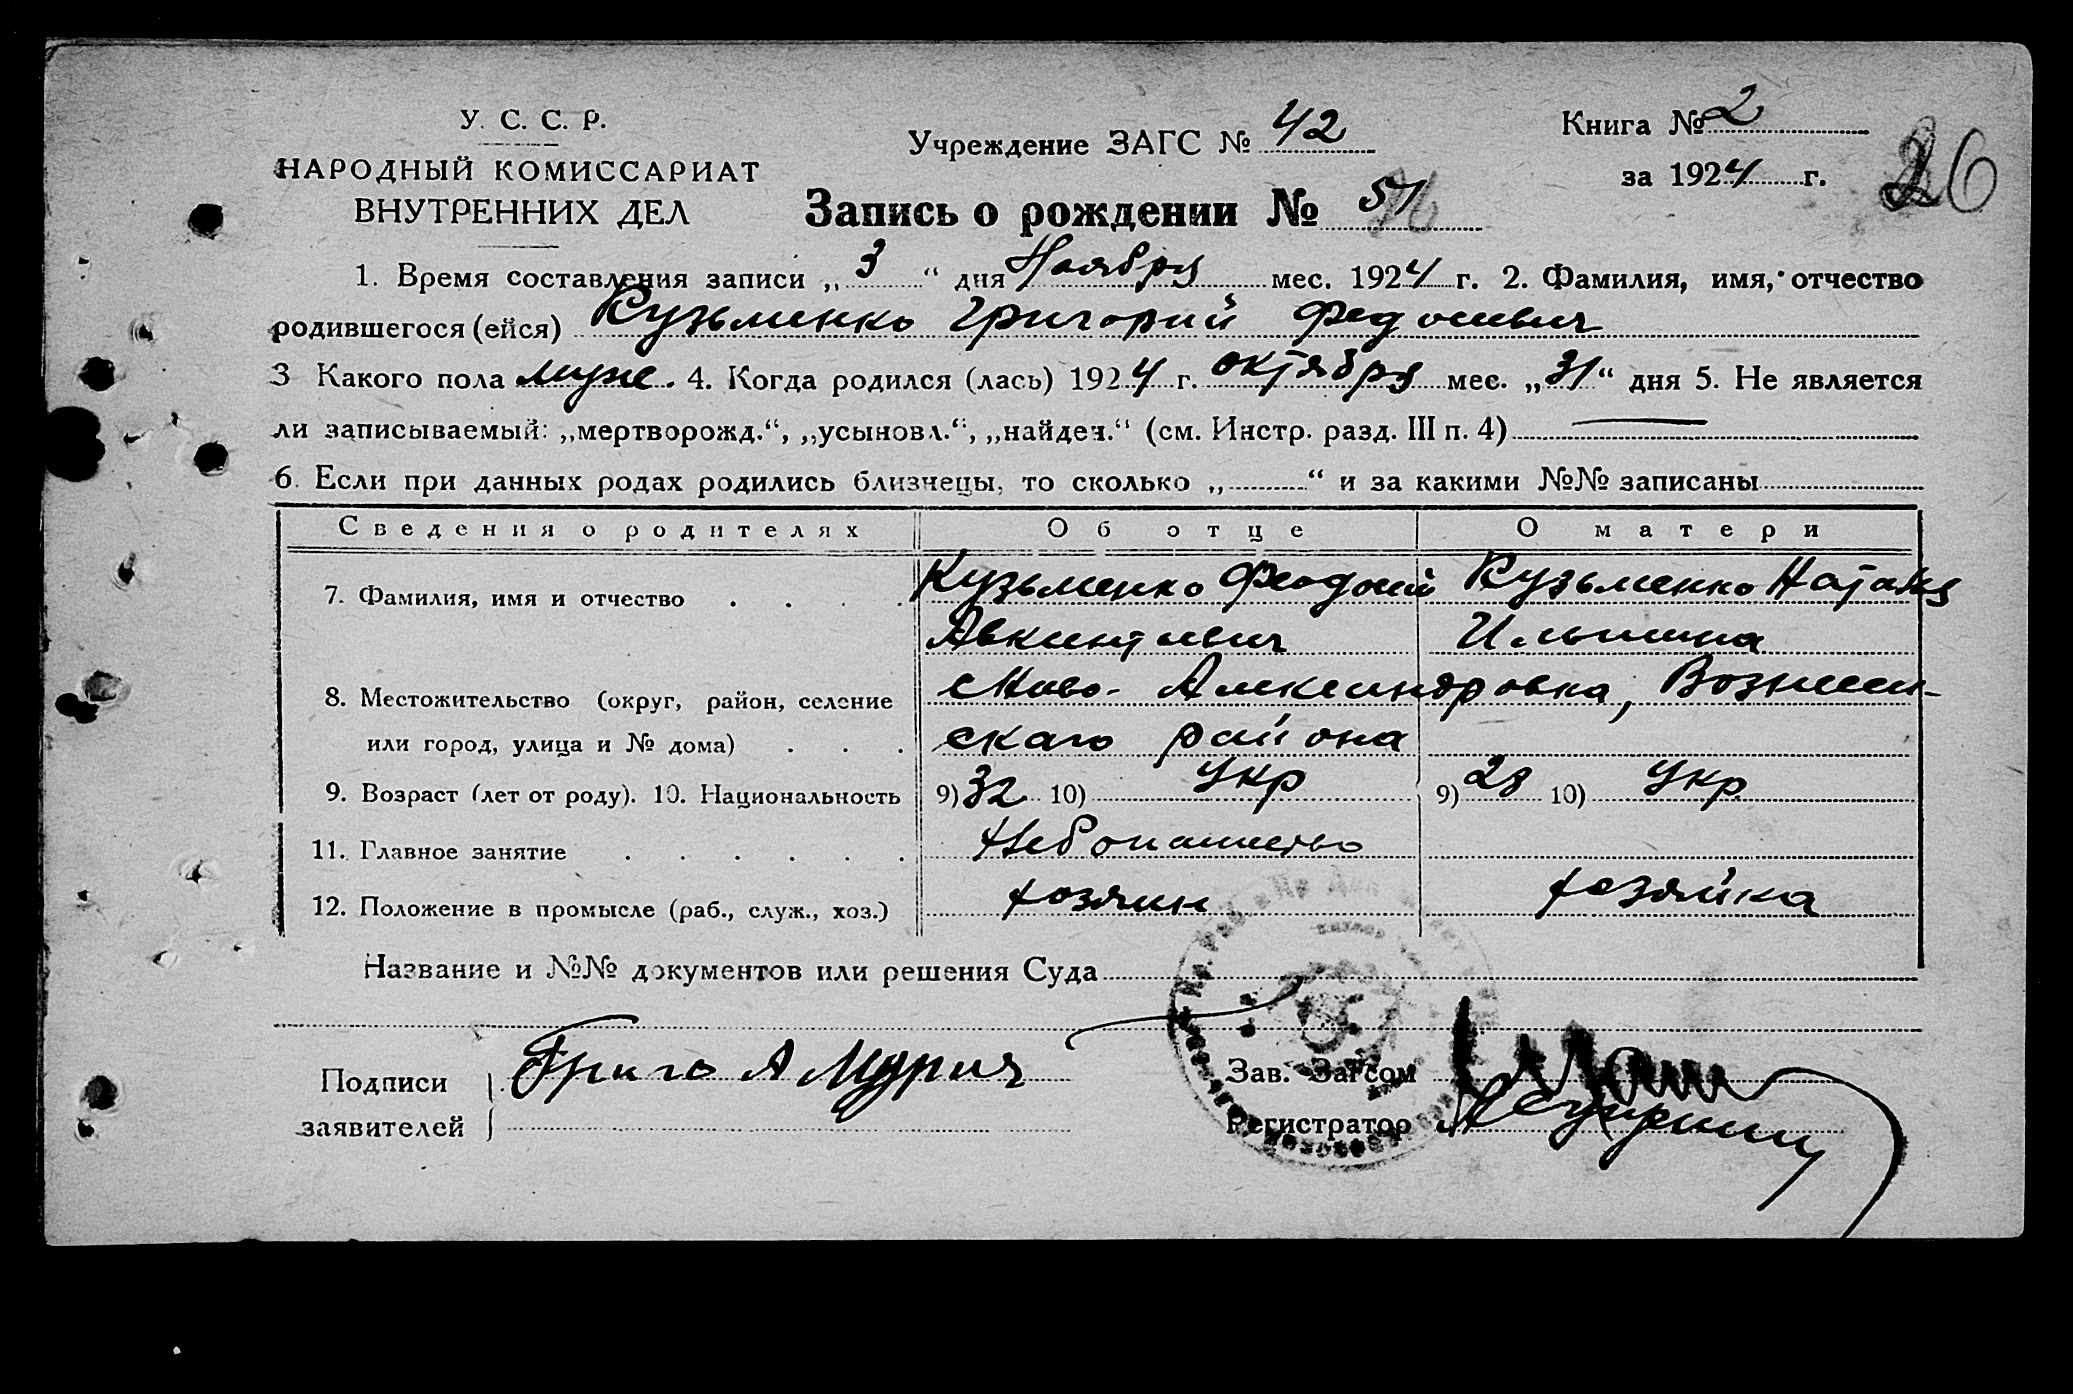 У. С. С. Р.
НАРОДНЫЙ КОМИССАРИАТ
ВНУТРЕННИХ ДЕЛ
Учреждение ЗАГС № 42
Книга № 2
за 1924 г.
26
Запись о рождении № 51
1. Время составления записи „ 3 “ дня Ноября мес. 1924 г. 2. Фамилия, имя, отчество
родившегося (ейся) Кузьменко Григорий Федосиевич
3 Какого пола муж. 4. Когда родился (лась) 1924 г. октября мес. „31“ дня 5. Не является
ли записываемый: „мертворожд.“, „усыновл.“, „найден.“ (см. Инстр. разд. III п. 4)
6. Если при данных родах родились близнецы, то сколько „ “ и за какими №№ записаны
Сведения о родителях Об отце О матери
7. Фамилия, имя и отчество Кузьменко Феодосий Кузьменко Наталия
Авкинтиевич Ильинина
8. Местожительство (округ, район, селение Ново-Александровка, Вознесен-
или город, улица и № дома) скаго района
9. Возраст (лет от роду). 10. Национальность 9) 32 10) Укр 9) 28 10) Укр.
11. Главное занятие Хлебопашество
12. Положение в промысле (раб., служ., хоз.) хозяин хозяйка
Название и №№ документов или решения Суда
Подписи
заявителей
Зав. Загсом
Регистратор